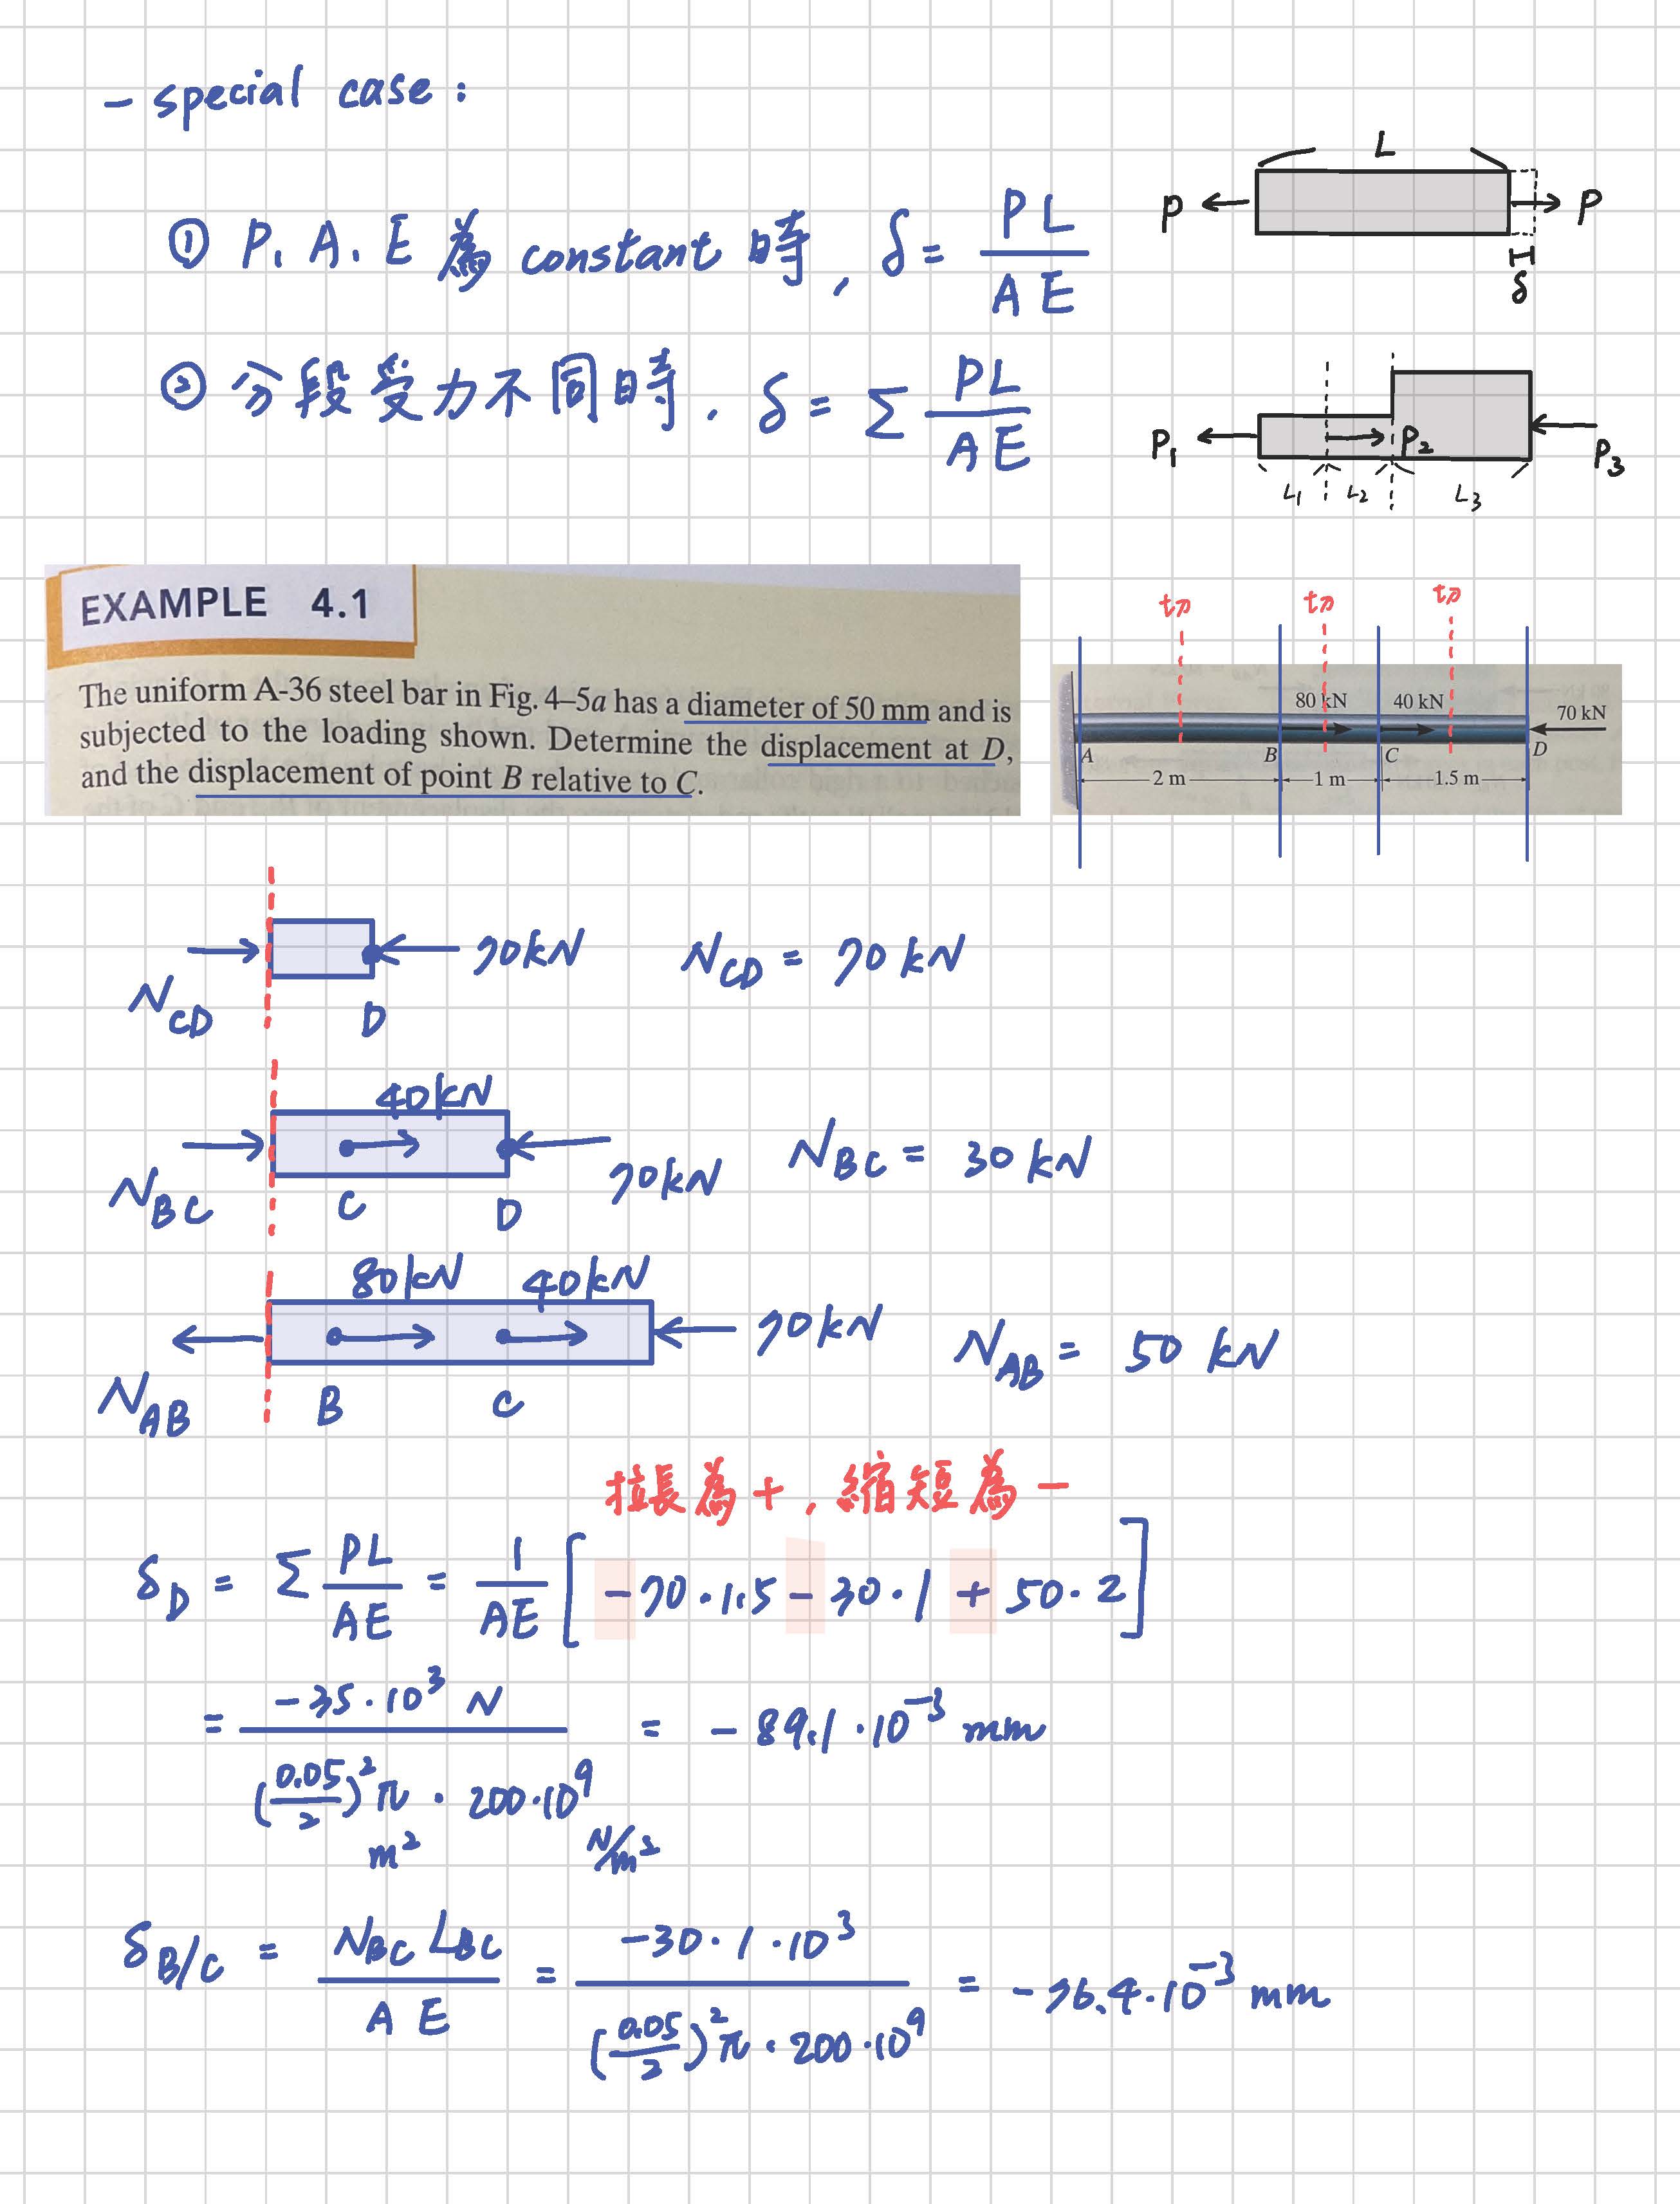 - special case :
① P, A, E 為 constant 時, δ = PL / AE
L
P P
δ
② 分段受力不同時, δ = Σ PL / AE
P₁ P₂ P₃
L₁ L₂ L₃
EXAMPLE 4.1
The uniform A-36 steel bar in Fig. 4–5a has a diameter of 50 mm and is
subjected to the loading shown. Determine the displacement at D,
and the displacement of point B relative to C.
切 切 切
80 kN 40 kN 70 kN
A B C D
2 m 1 m 1.5 m
N_CD D 70kN N_CD = 70 kN
40kN
N_BC C D 70kN N_BC = 30 kN
80kN 40kN
N_AB B C 70kN N_AB = 50 kN
拉長為+, 縮短為-
δ_D = Σ PL / AE = 1 / AE [ -70·1.5 - 30·1 + 50·2 ]
= -35·10³ N / (0.05/2)²π m² · 200·10⁹ N/m² = -89.1·10⁻³ mm
δ_B/C = N_BC L_BC / A E = -30·1·10³ / (0.05/2)²π · 200·10⁹ = -76.4·10⁻³ mm